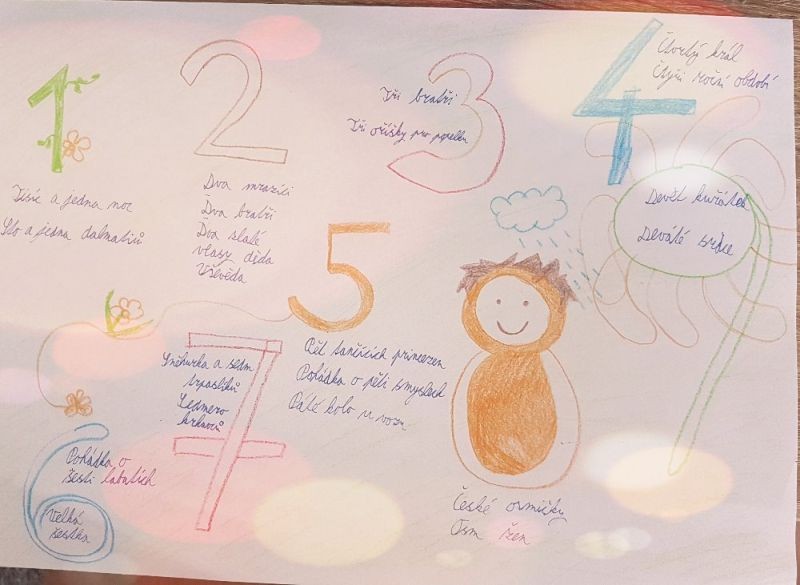 1
Tisíc a jedna noc
Sto a jedna dalmatinů
2
Dva mrazíci
Dva bratři
Dva zlaté
vlasy děda
Vševěda
3
Tři bratři
Tři oříšky pro popelku
4
Čtvrtý král
Čtyři roční období
5
Pět tančících princezen
Pohádka o pěti smyslech
Páté kolo u vozu
6
Pohádka o
šesti labutích
Velká
šestka
7
Sněhurka a sedm
trpaslíků
Sedmero
krkavců
8
České osmičky
Osm žen
9
Devět kuřátek
Deváté srdce